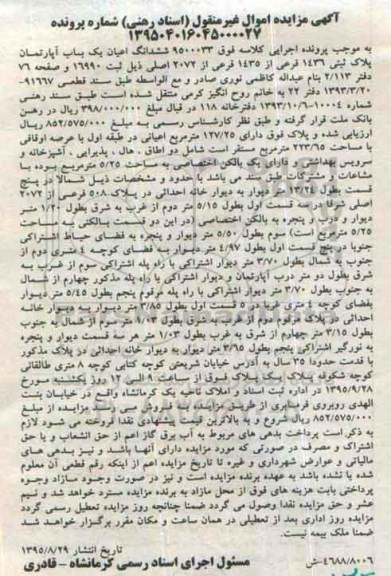 آگهی مزایده اموال غیرمنقول (اسناد رهنی) شماره پرونده
۱۳۹۵۰۴۰۱۶۰۴۵۰۰۰۰۲۷
به موجب پرونده اجرایی کلاسه فوق ۹۵۰۰۰۳۳ ششدانگ اعیان یک باب آپارتمان
پلاک ثبتی ۱۴۳۶ فرعی از ۱۴۳۵ فرعی از ۲۰۷۲ اصلی ذیل ثبت ۱۶۹۹۰ و صفحه ۷۶
دفتر ۲/۱۱۳ بنام عبداله کاظمی نوری صادر و مع الواسطه طبق سند قطعی ۹۱۶۶۷-
۱۳۹۳/۳/۲۰ دفتر ۲۲ به خانم روح انگیز کرمی منتقل شده است طبق سند رهنی
شماره ۱۰۰۰۴-۱۳۹۳/۱۰/۶ دفترخانه ۱۱۸ در قبال مبلغ ۳۹۸/۰۰۰/۰۰۰ ریال در رهن
بانک ملت قرار گرفته و طبق نظر کارشناس رسمی به مبلغ ۸۵۲/۵۷۵/۰۰۰ ریال
ارزیابی شده و پلاک فوق دارای ۱۲۷/۲۵ مترمربع اعیانی در طبقه اول با عرصه اوقافی
به مساحت ۲۲۳/۶۵ مترمربع مستقر است شامل دو اطاق، هال، پذیرایی، آشپزخانه و
سرویس بهداشتی و دارای یک بالکن اختصاصی به مساحت ۵/۲۵ مترمربع بوده با
مشاعات و مشترکات طبق سند می باشد با حدود و مشخصات ذیل شمالا در پنج
قسمت بطول ۱۳/۲۵ متر دیوار به دیوار خانه احداثی در پلاک ۵۰۸ فرعی از ۲۰۷۲
اصلی شرقا در سه قسمت اول بطول ۵/۱۵ متر دوم از غرب به شرق بطول ۱/۲۰ متر
دیوار و درب و پنجره به بالکن اختصاصی (در این دو قسمت بالکنی به مساحت
۵/۲۵ مترمربع است) سوم بطول ۵/۵۰ متر دیوار و پنجره به فضای حیاط اشتراکی
جنوبا در پنج قسمت اول بطول ۴/۹۷ متر دیوار به فضای کوچه ۴ متری دوم از
جنوب به شمال بطول ۳/۷۰ متر دیوار اشتراکی با راه پله اشتراکی سوم از غرب به
شرق بطول دو متر درب آپارتمان و دیوار اشتراکی با راه پله مذکور چهارم از شمال
به جنوب بطول ۳/۷۰ متر دیوار اشتراکی با راه پله مرقوم پنجم بطول ۵/۴۵ متر دیوار
بفضای کوچه ۴ متری غربا در ۵ قسمت اول بطول ۳/۸۵ متر دیوار به دیوار خانه
احداثی در پلاک مرقوم دوم از غرب به شرق بطول متر سوم از شمال به جنوب
بطول ۳/۱۵ متر چهارم از شرق به غرب بطول ۱/۰۳ متر هر سه قسمت دیوار و پنجره
به نورگیر اشتراکی پنجم بطول ۳/۶۵ متر دیوار به دیوار خانه احداثی در پلاک مذکور
با قدمت حدودا ۳۵ سال به آدرس خیابان شریعتی کوچه کتابی کوچه ۸ متری طالقانی
کوچه شکوفه پلاک یک پلاک فوق از ساعت ۹ الی ۱۲ روز یکشنبه مورخ
۱۳۹۵/۹/۲۸ در اداره ثبت اسناد و املاک ناحیه یک کرمانشاه واقع در خیابان بنت
الهدی روبروی فرمانداری از طریق مزایده به فروش می رسد مزایده از مبلغ
۸۵۲/۵۷۵/۰۰۰ ریال شروع و به بالاترین قیمت پیشنهادی نقدا فروخته می شود لازم
به ذکر است پرداخت بدهی های مربوط به آب برق گاز اعم از حق انشعاب و یا حق
اشتراک و مصرف در صورتی که مورد مزایده دارای آنها باشد و نیز بدهی های
مالیاتی و عوارض شهرداری و غیره تا تاریخ مزایده اعم از اینکه رقم قطعی آن معلوم
شده یا نشده باشد به عهده برنده مزایده است و نیز در صورت وجود مازاد وجوه
پرداختی بابت هزینه های فوق از محل مازاد به برنده مزایده مسترد خواهد شد و نیم
عشر و حق مزایده نقدا وصول می گردد ضمنا چنانچه روز مزایده تعطیل رسمی گردد
مزایده روز اداری بعد از تعطیلی در همان ساعت و مکان مقرر برگزار خواهد شد
ضمنا ملک بیمه نیست.
تاریخ انتشار ۱۳۹۵/۸/۲۹
۴۶۸۸/۸۰۰۶-ش مسئول اجرای اسناد رسمی کرمانشاه - قادری